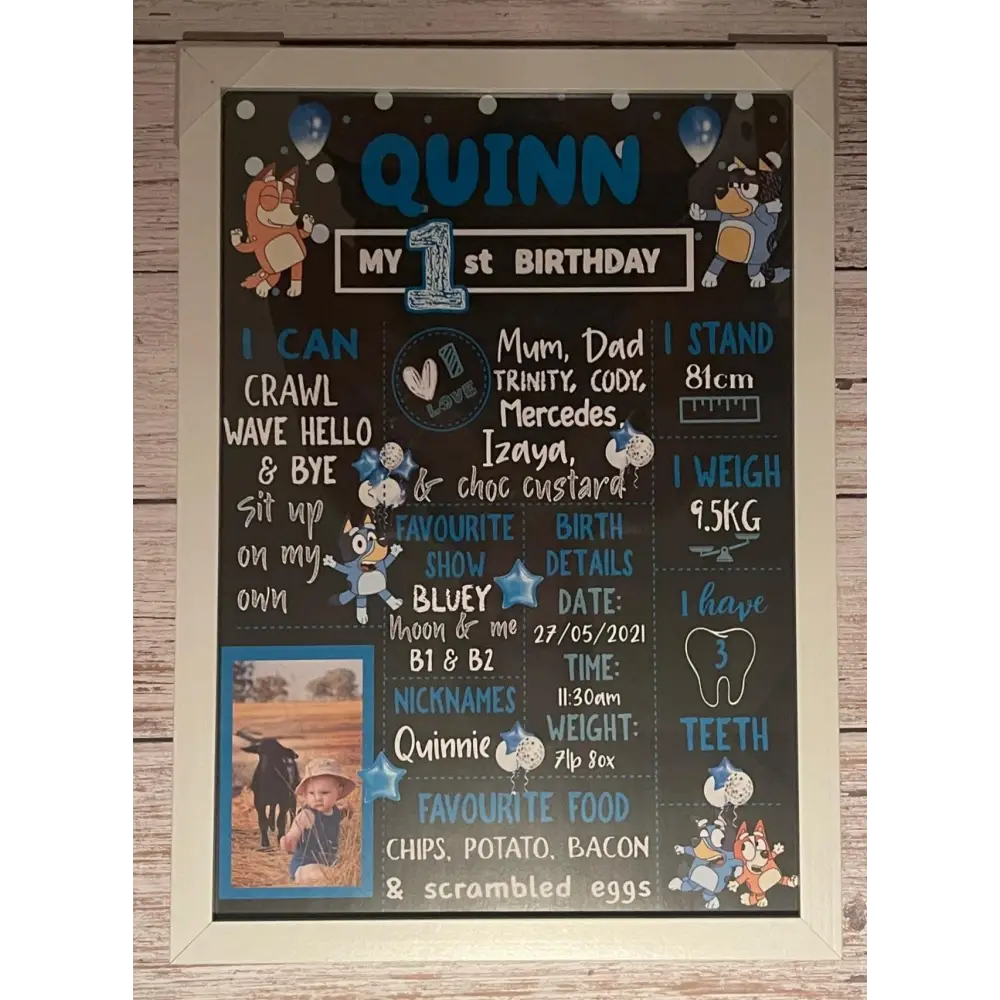 QUINN
MY 1st BIRTHDAY
I CAN
CRAWL
WAVE HELLO
& BYE
sit up
on my
own
I LOVE
Mum, Dad
TRINITY, CODY,
Mercedes,
Izaya,
& choc custard
I STAND
81cm
I WEIGH
9.5KG
I have
3
TEETH
FAVOURITE
SHOW
BLUEY
Moon & me
B1 & B2
NICKNAMES
Quinnie
BIRTH
DETAILS
DATE:
27/05/2021
TIME:
11:30am
WEIGHT:
7lp 8ox
FAVOURITE FOOD
CHIPS, POTATO, BACON
& scrambled eggs